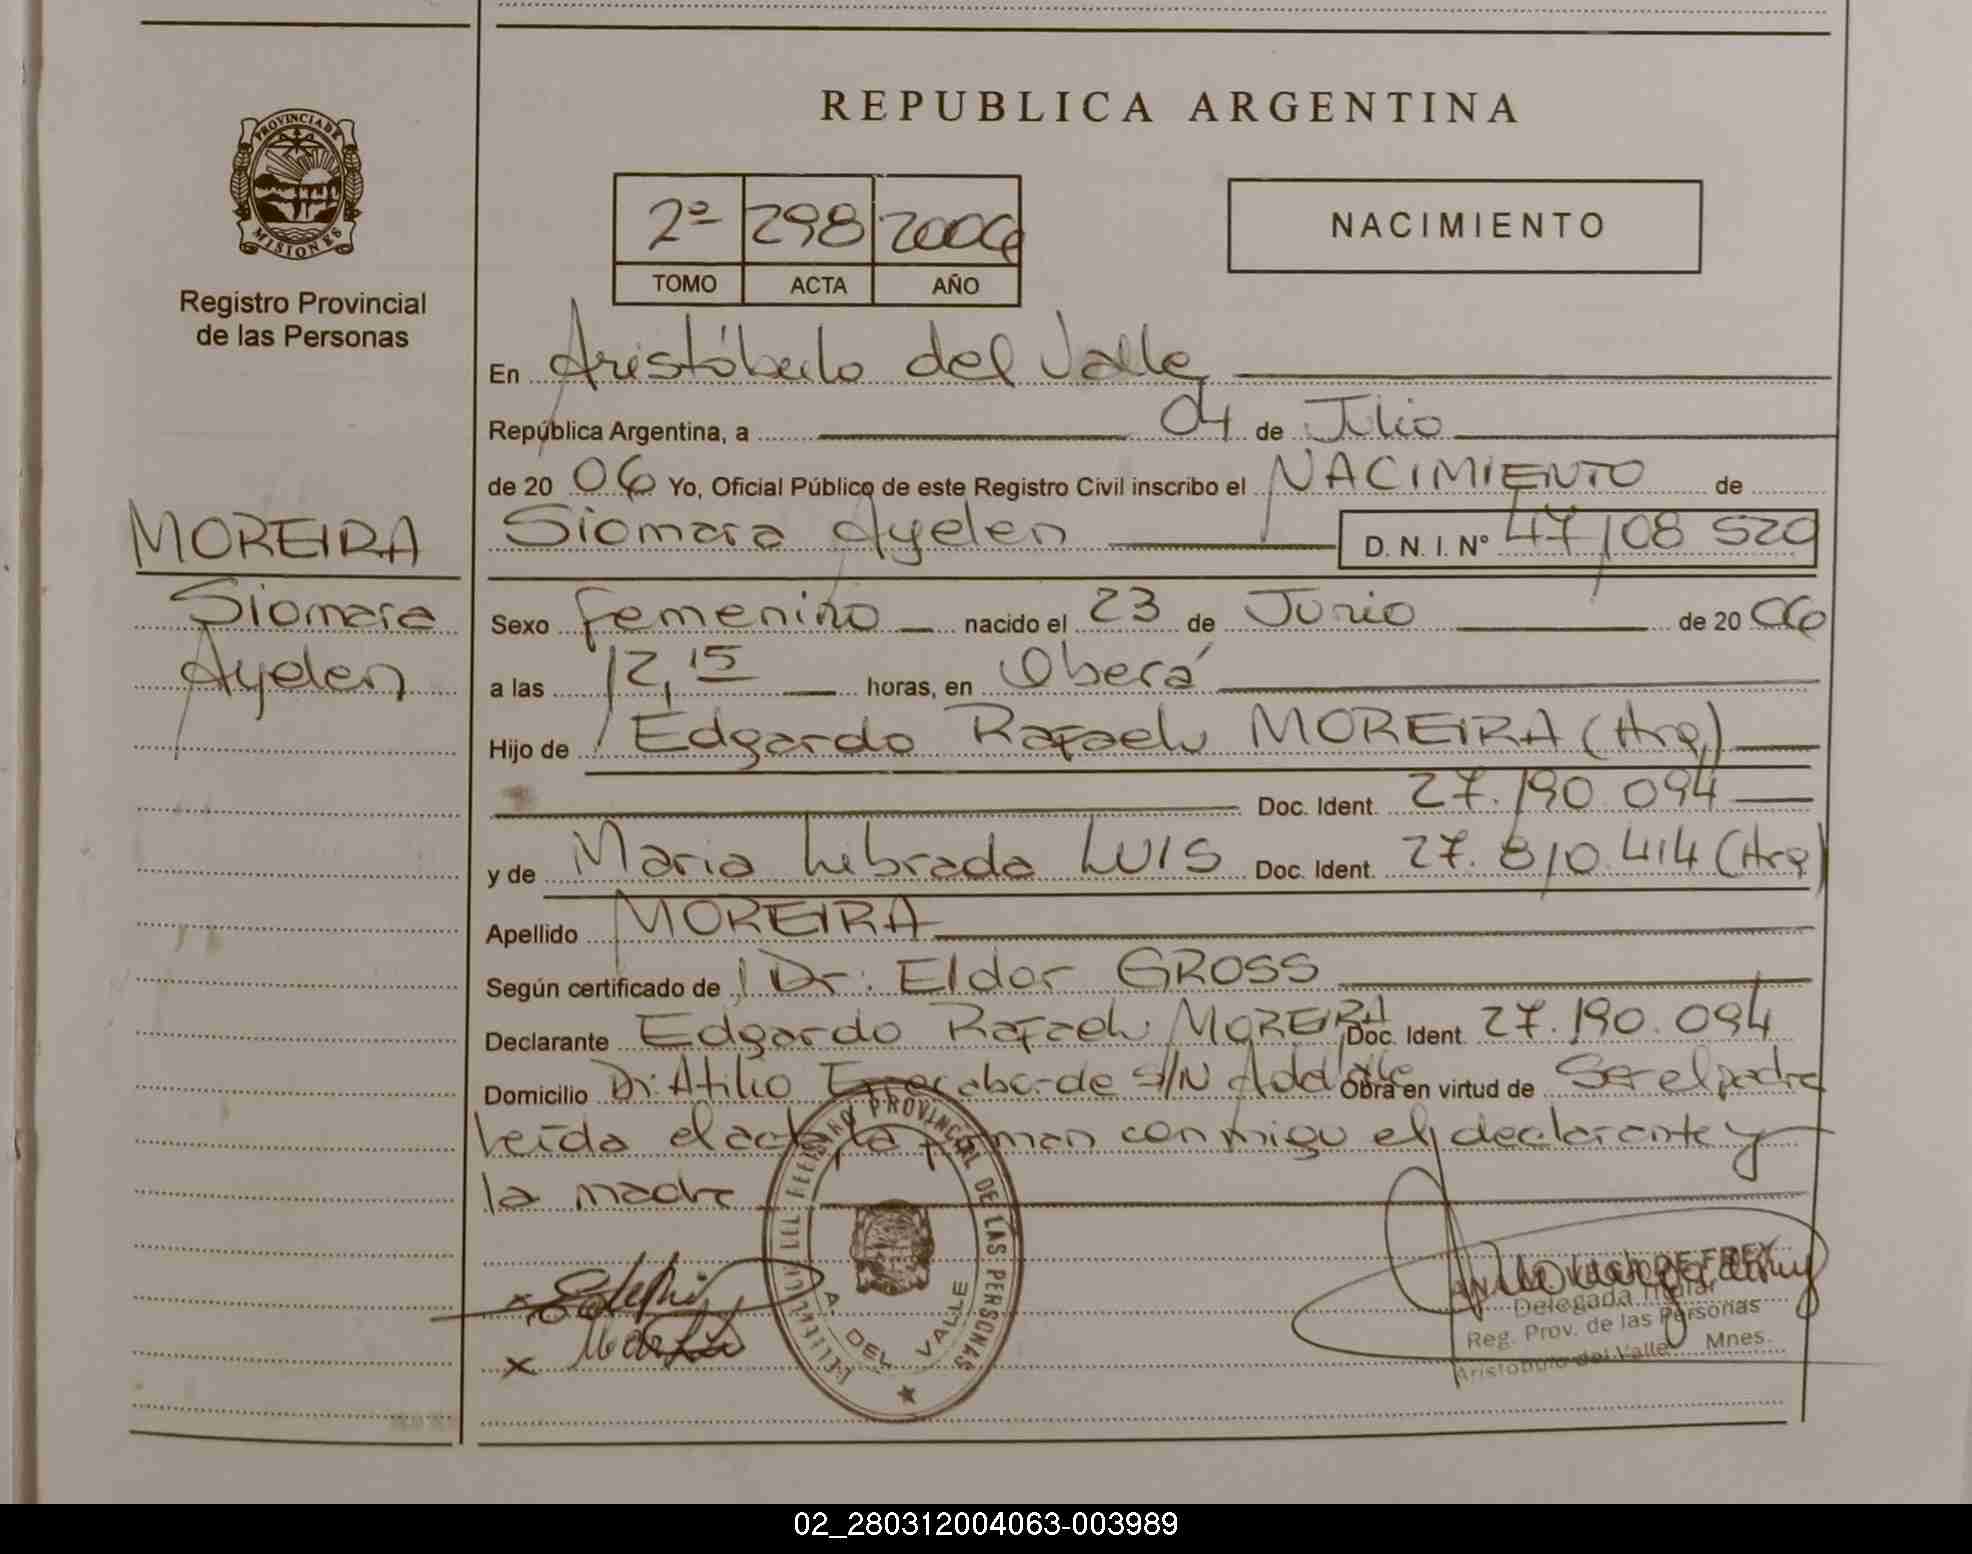 REPUBLICA ARGENTINA
PROVINCIA DE
MISIONES
Registro Provincial
de las Personas
2º 298 2006
TOMO ACTA AÑO
NACIMIENTO
En Aristóbulo del Valle
República Argentina, a 04 de Julio
de 20 06 Yo, Oficial Público de este Registro Civil inscribo el NACIMIENTO de
Siomara Ayelen D. N. I. Nº 47 108 520
MOREIRA
Siomara
Ayelen
Sexo femenino nacido el 23 de Junio de 20 06
a las 12,15 horas, en Oberá
Hijo de Edgardo Rafael MOREIRA (Arg)
Doc. Ident. 27.190 094
y de Maria Librada LUIS Doc. Ident. 27.810.414 (Arg)
Apellido MOREIRA
Según certificado de Dr. Eldor GROSS
Declarante Edgardo Rafael MOREIRA Doc. Ident. 27.190.094
Domicilio Dr. Atilio S/N A del Valle Obra en virtud de Ser el padre
Leída el acta la firman conmigo el declarante y
la madre
DEL REGISTRO PROVINCIAL DE LAS PERSONAS
A. DEL VALLE
DE FREY
Delegada Titular
Reg. Prov. de las Personas
Aristóbulo del Valle Mnes.
02_280312004063-003989